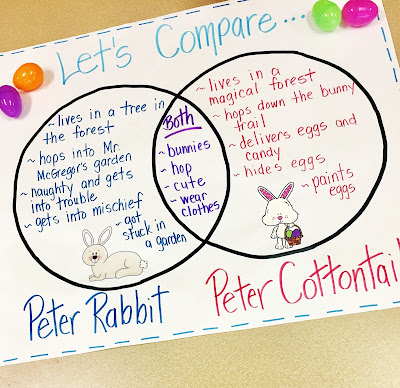 Let's Compare...
~lives in a tree in
the forest
~hops into Mr.
McGregor's garden
~naughty and gets
into trouble
~gets into mischief
~got
stuck in
a garden
Both
~bunnies
~hop
~cute
~wear
clothes
~lives in a
magical forest
~hops down the bunny
trail
~delivers eggs and
candy
~hides eggs
~paints
eggs
Peter Rabbit
Peter Cottontail